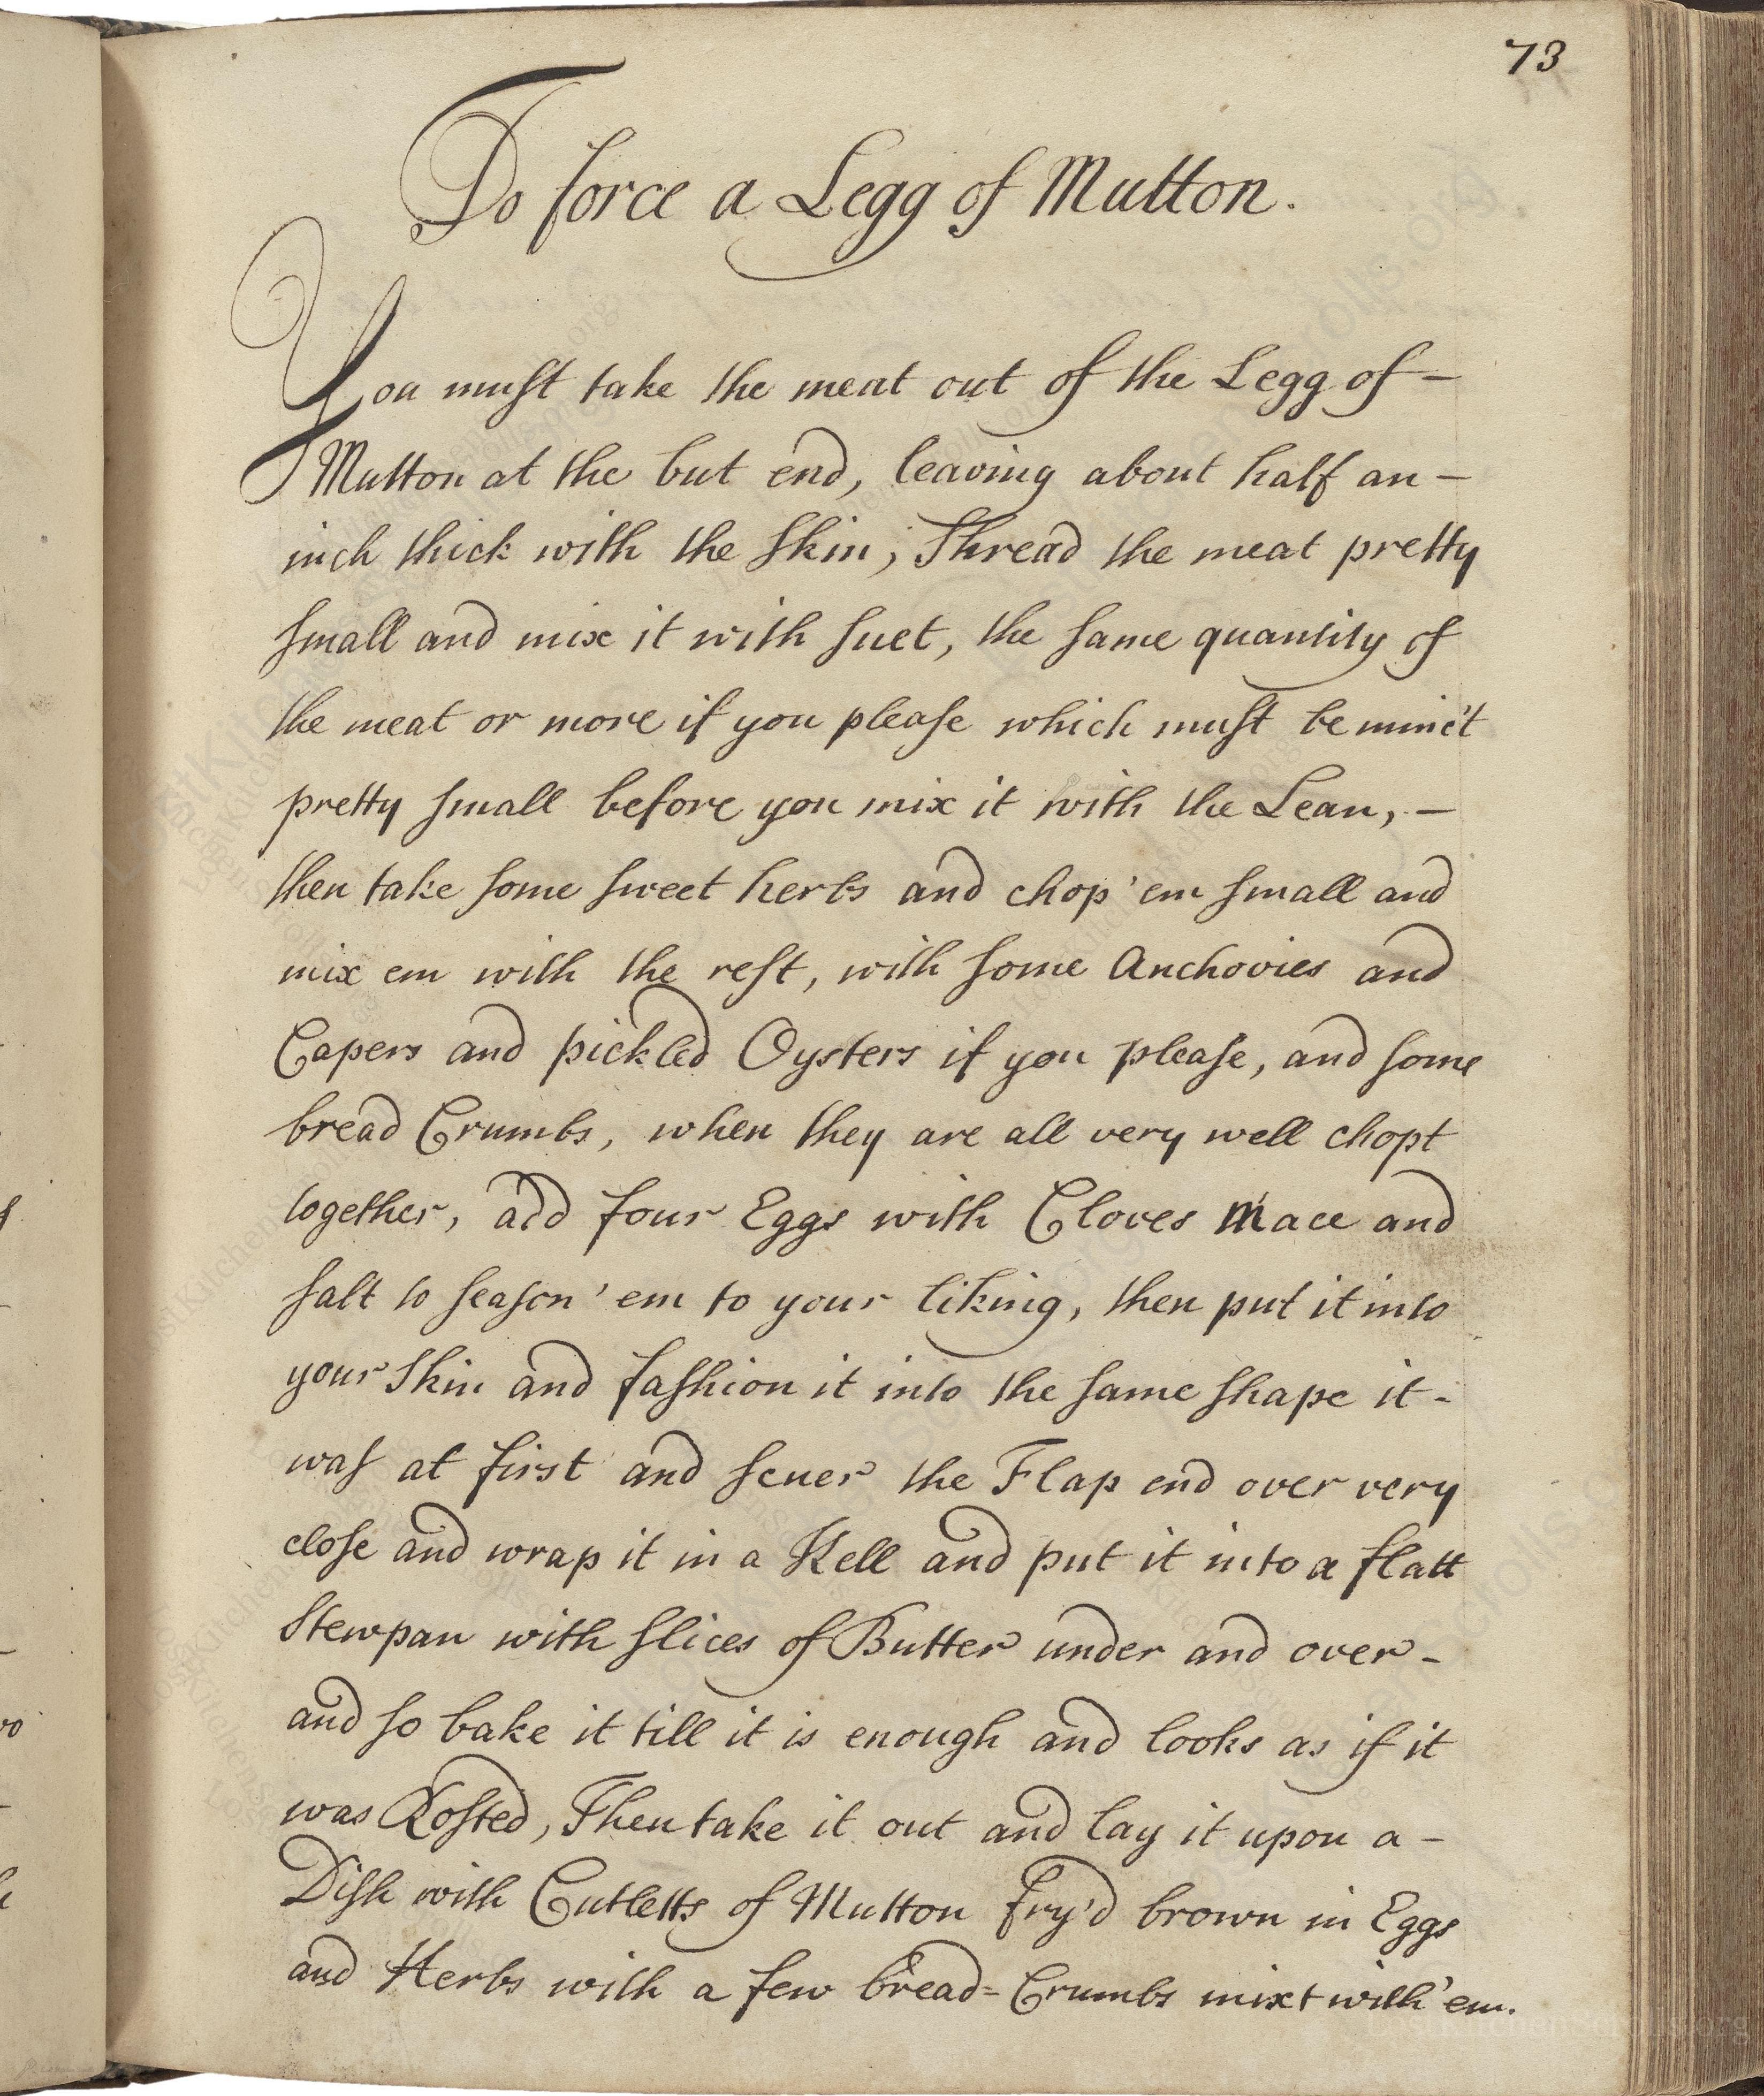 73
To force a Legg of Mutton.
You must take the meat out of the Legg of -
Mutton at the but end, leaving about half an -
inch thick with the skin; Shread the meat pretty
small and mix it with suet, the same quantity of
the meat or more if you please which must be minc't
pretty small before you mix it with the Lean, -
then take some sweet herbs and chop 'em small and
mix em with the rest, with some Anchovies and
Capers and pickled Oysters if you please, and some
bread Crumbs, when they are all very well chopt
together, add four Eggs with Cloves Mace and
salt to season 'em to your liking, then put it into
your Skin and fashion it into the same shape it -
was at first and scuer the Flap end over very
close and wrap it in a Kell and put it into a flatt
Stewpan with slices of Butter under and over -
and so bake it till it is enough and looks as if it
was Rosted, Then take it out and lay it upon a -
Dish with Cutletts of Mutton fry'd brown in Eggs
and Herbs with a few bread=Crumbs mixt with 'em.